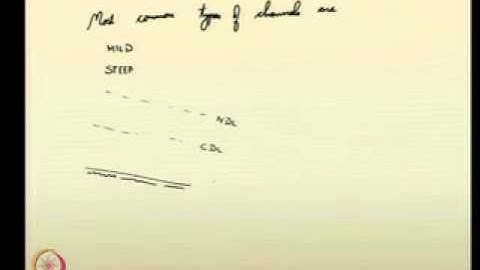 Most common types of channels are
MILD
STEEP
NDL
CDL